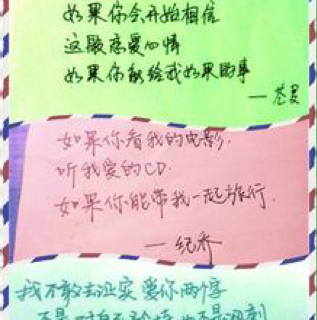 如果你会开始相信
这般恋爱心情
如果你能给我如果的事
如果你看我的电影.
听我爱的CD.
如果你能带我一起旅行.
我不敢去证实 爱你两个字
不是对自己矜持 也不是讽刺